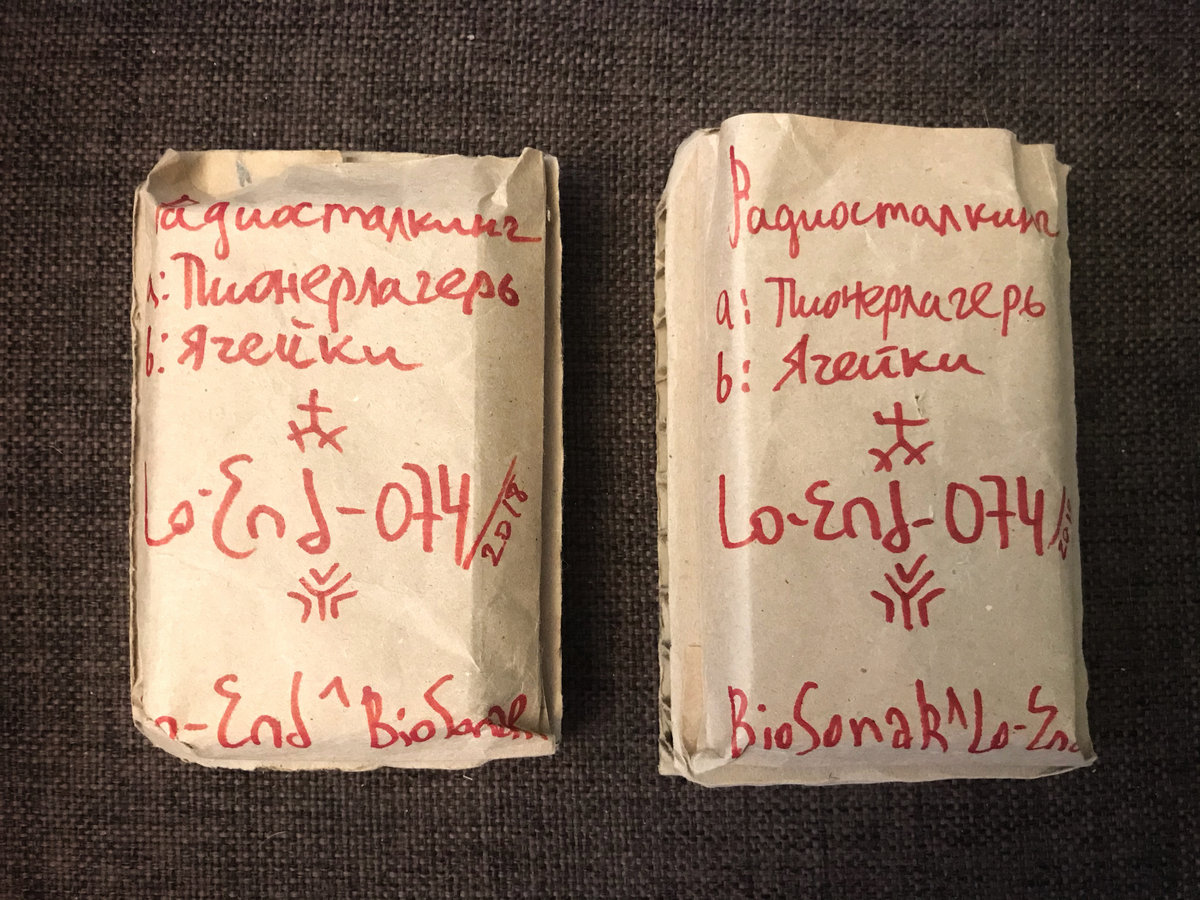 Радиосталкинг
a: Пионерлагерь
b: Ячейки
Lo-End-074/2018
Lo-End^BioSonar
Радиосталкинг
a: Пионерлагерь
b: Ячейки
Lo-End-074/2018
BioSonar^Lo-End